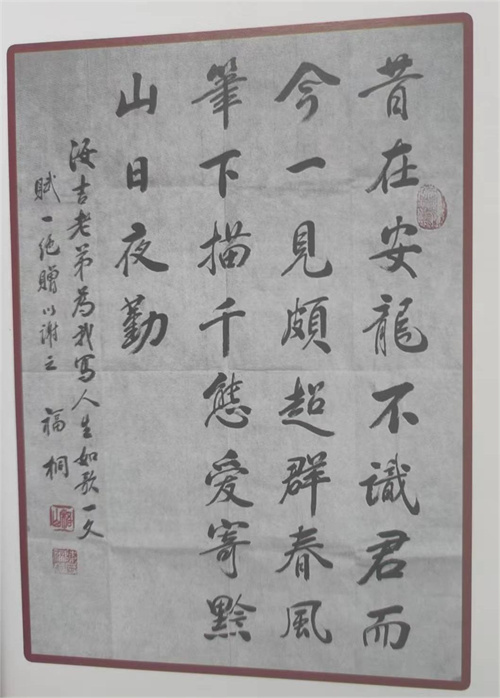 昔在安龍不識君而
今一見頗超群春風
筆下描千態愛寄黔
山日夜勤
海吉老弟為我寫人生如歌一文
賦一絕贈以謝之 福桐